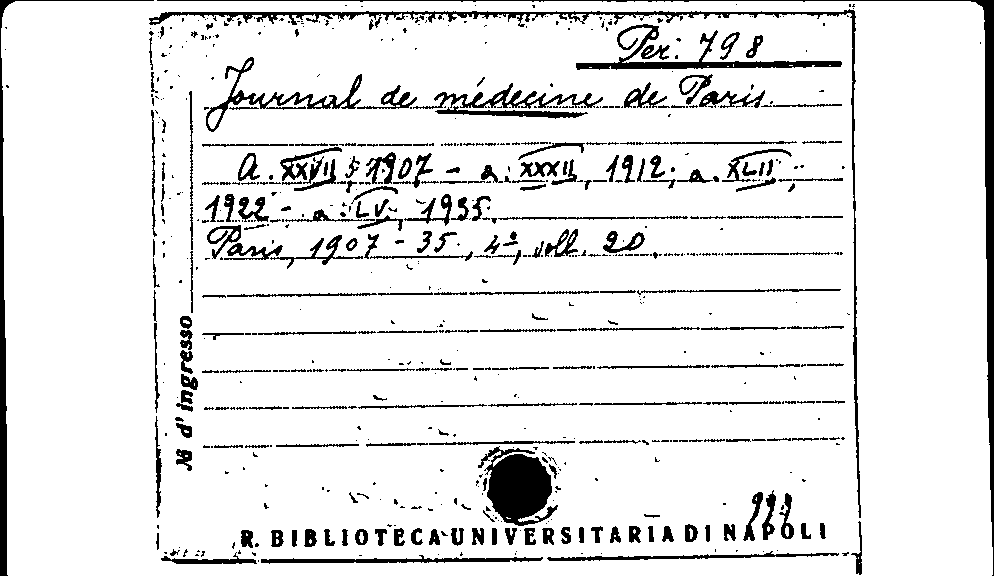 Per. 798
Journal de médecine de Paris.
A. XXVII, 1907 - a. XXXII, 1912; a. XLII,
1922 - a. LV, 1935.
Paris, 1907 - 35, 4º, voll. 20.
№ d'ingresso
R. BIBLIOTECA UNIVERSITARIA DI NAPOLI